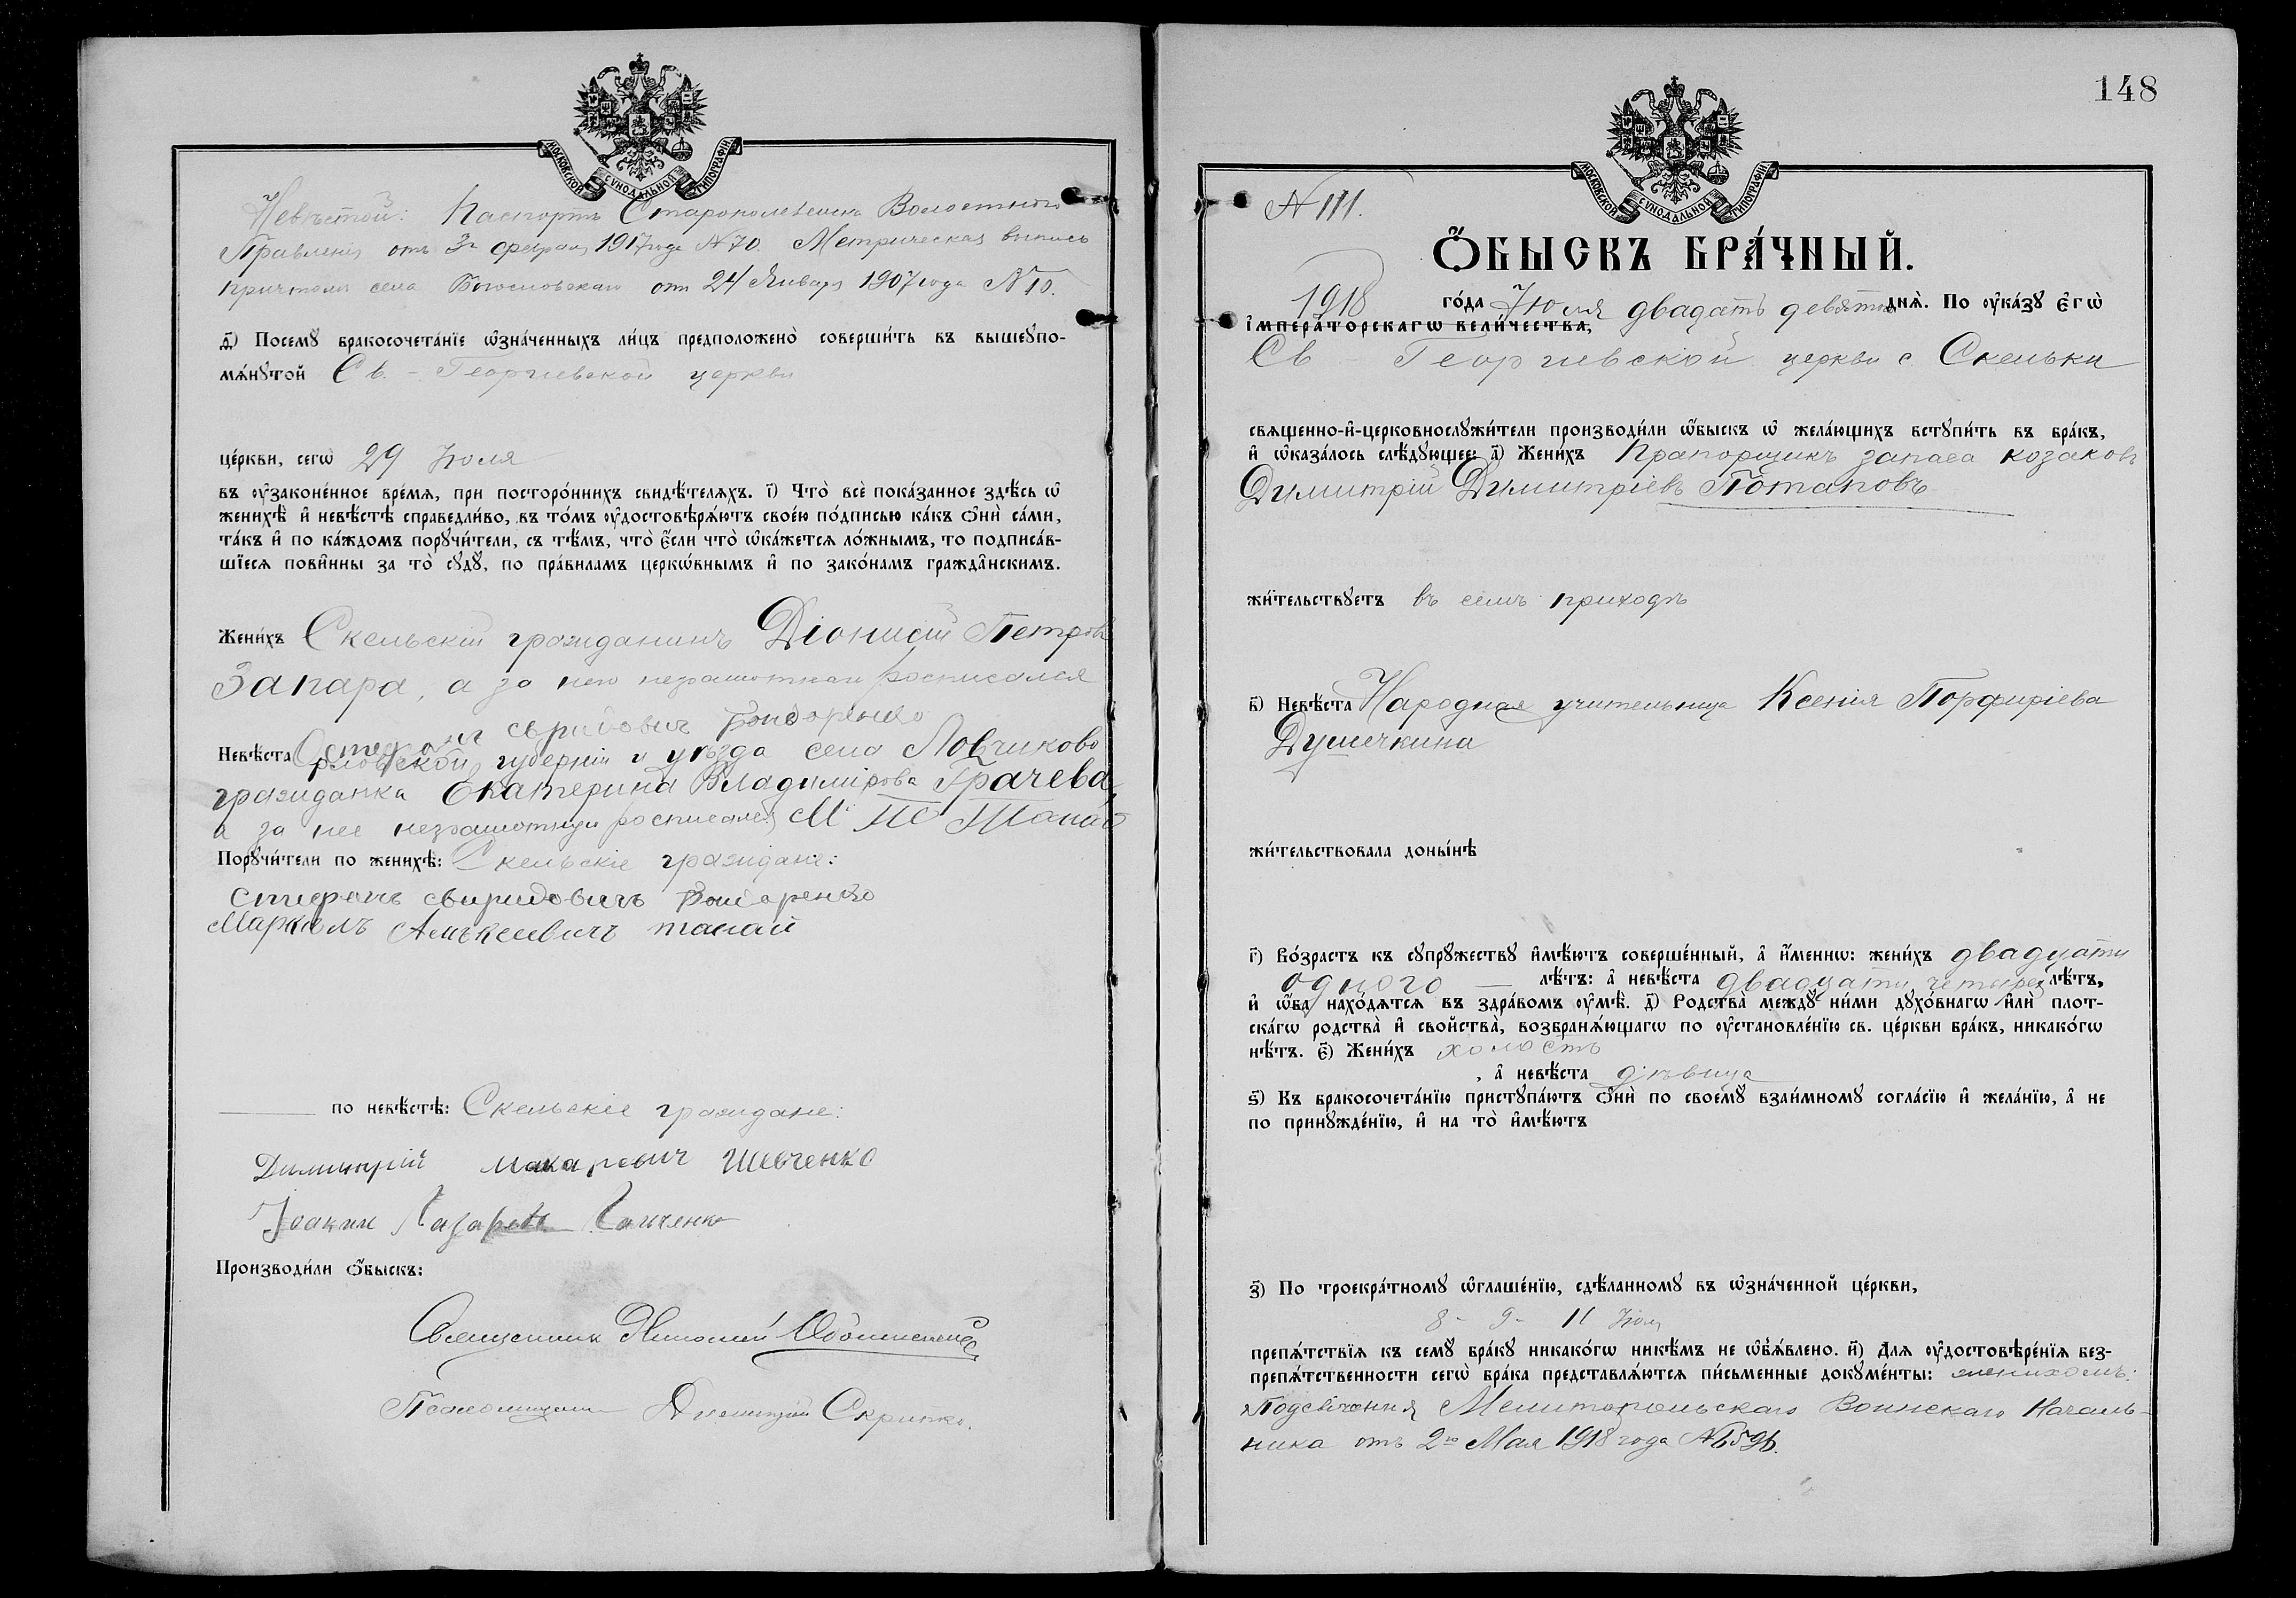 МОСКОВСКОЙ СУНОДАЛЬНОЙ ТИПОГРАФІИ
Невѣстой: Паспортъ Волостного
Правленія отъ 3го февраля 1917 года № 70. Метрическая выпись
причтомъ села Богословскаго отъ 24 Января 1907 года № 10.
д҃) Посемꙋ бракосочета́нїе ѡ҆зна́ченныхъ ли́цъ предположено̀ соверши́ть въ вышеꙋпо-
мѧ́нꙋтой Св. - Георгіевской церкви
це́ркви, сегѡ̀ 29 Іюля
въ оу҆законе́нное вре́мѧ, при посторо́ннихъ свидѣ́телѧхъ. і҃) Что̀ всѐ пока́занное здѣ́сь ѡ҆
женихѣ̀ и҆ невѣ́стѣ справедли́во, въ то́мъ оу҆достовѣрѧ́ютъ свое́ю по́дписью ка́къ ѻ҆нѝ са́ми,
та́къ и҆ по ка́ждомъ порꙋчи́тели, съ тѣ́мъ, что̀ є҆́сли что̀ ѡ҆ка́жетсѧ ло́жнымъ, то подписа́в-
шїесѧ пови́нны за то̀ сꙋдꙋ̀, по пра́виламъ церко́внымъ и҆ по зако́намъ гражда́нскимъ.
Жени́хъ Скельскій гражданинъ Діонисій Петровъ
Запара, а за него неграмотнаго росписался
свридовичъ
Невѣ́ста Орловской губерніи и уѣзда села Ловчиково
гражданка Екатерина Владимірова Грачева,
а за нее неграмотную росписался М
Порꙋчи́тели по женихѣ̀: Скельскіе граждане:
стифанъ свиридовичъ
Алѣксиевичъ танай
по невѣ́стѣ: Скельскіе граждане:
Димитрій макаревич Шевченко
Іоаким
Производи́ли ѻ҆́быскъ:
Священник Николай
Псаломщикъ Димитрій Скрипко.
148
МОСКОВСКОЙ СУНОДАЛЬНОЙ ТИПОГРАФІИ
№ 111.
Ѻ҆́БЫСКЪ БРА́ЧНЫЙ.
1918 го́да Іюля двадать девятаго днѧ̀. По оу҆ка́зꙋ є҆гѡ̀
і҆мпера́торскагѡ вели́чества,
Св Георгиевской церкви с. Скельки
свѧщенно-и҆-церковнослꙋжи́тели производи́ли ѡ҆́быскъ ѡ҆ жела́ющихъ встꙋпи́ть въ бра́къ,
и҆ ѡ҆каза́лось слѣ́дꙋющее: а҃) Жени́хъ Прапорщикъ запаса козаковъ
Димитрій Димитріевъ Потаповъ
жи́тельствꙋетъ въ семъ приходѣ
в҃) Невѣ́ста Народная учительница Ксенія Порфиріева
Душечкина
жи́тельствовала доны́нѣ
г҃) Во́зрастъ къ сꙋпрꙋ́жествꙋ и҆мѣ́ютъ соверше́нный, а҆ и҆́меннѡ: жени́хъ двадцати
одного лѣ́тъ: а҆ невѣ́ста двадцати четырех лѣ́тъ,
и҆ ѻ҆́ба нахо́дѧтсѧ въ здра́вомъ оу҆мѣ̀. д҃) Родства̀ междꙋ̀ ни́ми дꙋхо́внагѡ и҆лѝ плот-
ска́гѡ родства̀ и҆ свойства̀, возбранѧ́ющагѡ по оу҆становле́нїю св. це́ркви бра́къ, никако́гѡ
нѣ́тъ. є҃) Жени́хъ холостъ
, а҆ невѣ́ста дѣвица
ѕ҃) Къ бракосочета́нїю пристꙋпа́ютъ ѻ҆нѝ по своемꙋ̀ взаи́мномꙋ согла́сїю и҆ жела́нїю, а҆ не
по принꙋжде́нїю, и҆ на то̀ и҆мѣ́ютъ
з҃) По троекра́тномꙋ ѡ҆глаше́нїю, сдѣ́ланномꙋ въ ѡ҆зна́ченной це́ркви,
8 - 9 - 11 Іюля
препѧ́тствїѧ къ семꙋ̀ бра́кꙋ никако́гѡ никѣ́мъ не ѡ҆б̾ѧ́влено. и҃) Длѧ оу҆достовѣре́нїѧ без-
препѧ́тственности сегѡ̀ бра́ка представлѧ́ютсѧ пи́сьменные докꙋме́нты: женихомъ:
Подсвічення Мелитопольскаго Воинскаго Началь-
ника отъ 2го Мая 1918 года